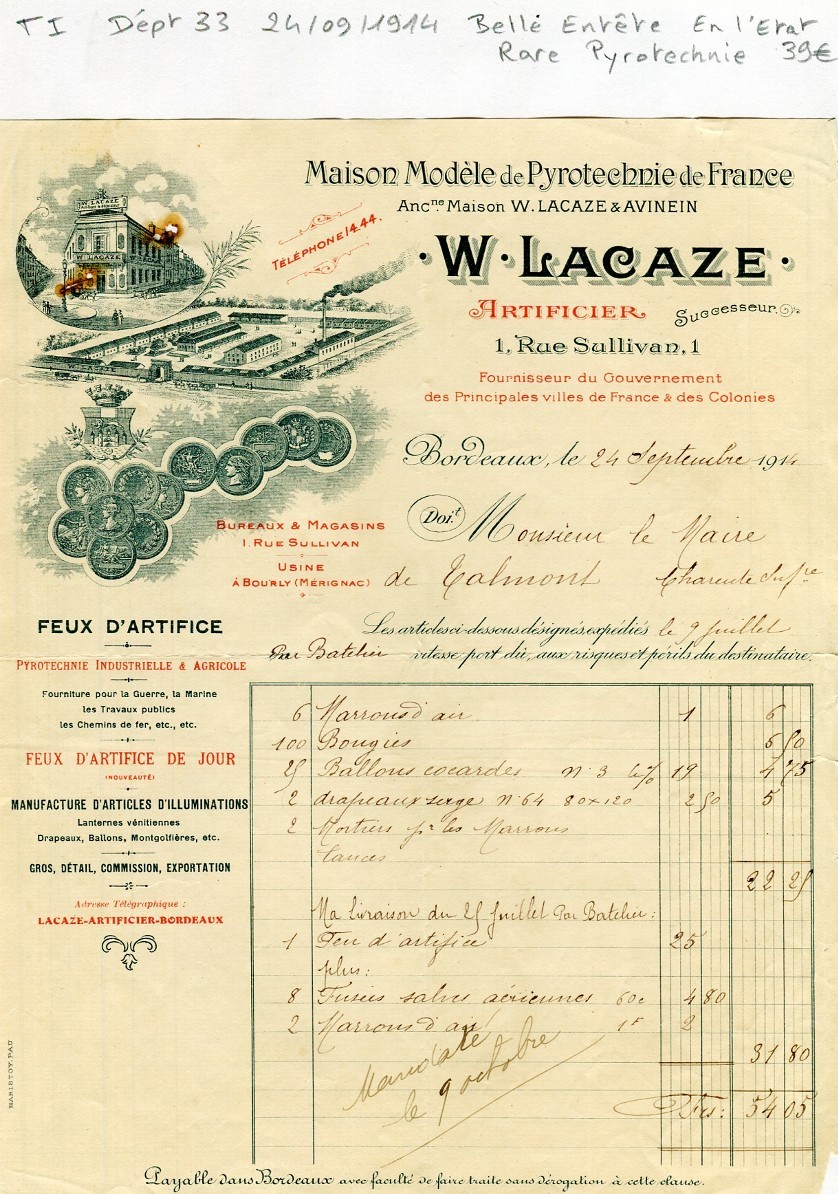 TI Dépt 33 24/09/1914 Belle Entête En l'Etat
Rare Pyrotechnie 39€
Maison Modèle de Pyrotechnie de France
Anc.ne Maison W. LACAZE & AVINEIN
W. LACAZE
W. LACAZE
TÉLÉPHONE 14.44.
· W · LACAZE ·
ARTIFICIER Successeur.
1, Rue Sullivan, 1
Fournisseur du Gouvernement
des Principales villes de France & des Colonies
Bordeaux, le 24 Septembre 1914
Doi.t Monsieur le Maire
de Talmont Charente Infre
BUREAUX & MAGASINS
1. RUE SULLIVAN
USINE
À BOURLY (MÉRIGNAC)
Les articles ci-dessous désignés, expédiés le 9 Juillet
Par Batelier vitesse port dû, aux risques et périls du destinataire.
FEUX D'ARTIFICE
PYROTECHNIE INDUSTRIELLE & AGRICOLE
Fourniture pour la Guerre, la Marine
les Travaux publics
les Chemins de fer, etc., etc.
FEUX D'ARTIFICE DE JOUR
(NOUVEAUTÉ)
MANUFACTURE D'ARTICLES D'ILLUMINATIONS
Lanternes vénitiennes
Drapeaux, Ballons, Montgolfières, etc.
GROS, DÉTAIL, COMMISSION, EXPORTATION
Adresse Télégraphique :
LACAZE-ARTIFICIER-BORDEAUX
6 Marrons d'air 1 6
100 Bougies 6 50
25 Ballons cocardes n° 3 % 19 4 75
2 drapeaux serge n° 64 80×120 2 50 5
2 Mortiers pr les Marrons
lancés
22 25
Ma livraison du 25 Juillet Par Batelier :
1 Feu d'artifice 25
plus :
8 Fusées salves aériennes 60c 4 80
2 Marrons d'air 1F 2
31 80
Mandaté
le 9 octobre
Frs : 54 05
HARISTOY. PAU
Payable dans Bordeaux avec faculté de faire traite sans dérogation à cette clause.